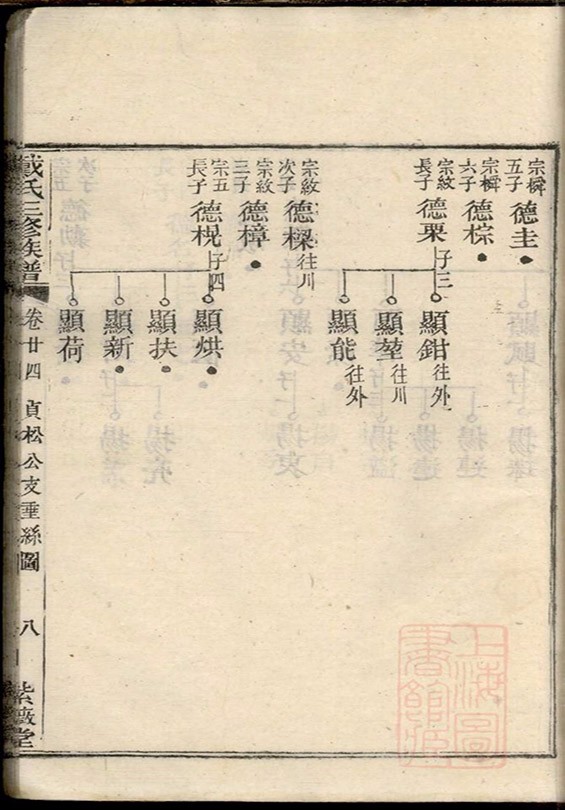 宗瞬五子 德圭
宗瞬六子 德棕
宗紋長子 德栗 子三
顯鉗 往外
顯堃 往川
顯能 往外
宗紋次子 德樑 往川
宗紋三子 德樟
宗五長子 德梘 子四
顯烘
顯扶
顯新
顯荷
戴氏三修族譜 卷廿四 貞松公支垂絲圖 八 紫薇堂
上海圖書館藏